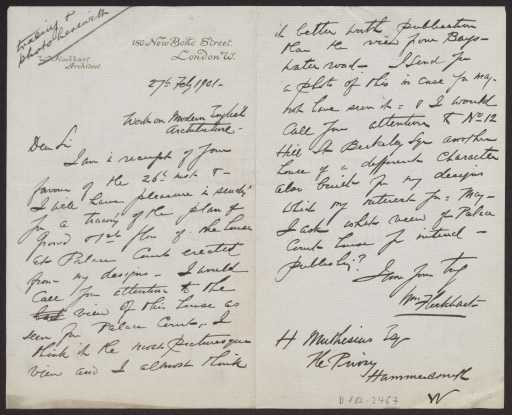 tracing &
photo herewith
Wm Flockhart
Architect
180 New Bond Street.
London W.
27th Feby 1901 -
Work on Modern English
Architecture -
Dear Sir
I am in receipt of your
favour of the 26th inst & -
I will have pleasure in sending
you a tracing of the plan of
Ground & 1st floor of the House
at Palace Court erected
from my designs - I would
call your attention to the
view of this House as
seen from Palace Court, I
think it the most picturesque
view and I almost think
it better worth publication
than the view from Bays-
water road - I send you
a photo of this in case you may
not have seen it = & I would
call your attention to No 12
Hill St Berkeley Sqr another
house of a different character
also built from my designs
which may interest you = May
I ask what view of Palace
Court House you intend -
publishing?
I am yours try
Wm Flockhart
H Muthesius Esq
The Priory
Hammersmith
W
D 102-2467